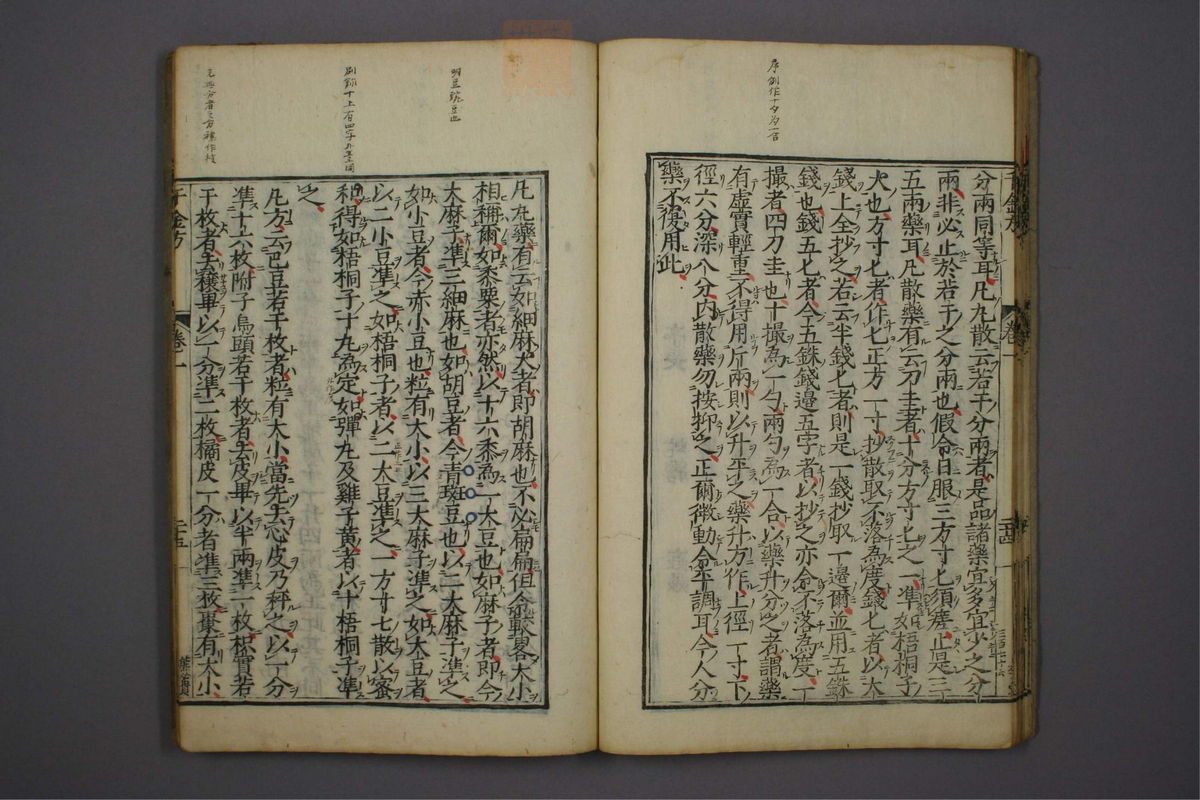 序例作十勺为一合
千金方
卷一
二十四
分兩同等耳凡丸散云若干分兩者是品諸藥宜多宜少之分
兩非必止於若干之分兩也假令日服三方寸匕須瘥止是三
五兩藥耳凡散藥有云刀圭者十分方寸匕之一準如梧桐子
大也方寸匕者作匕正方一寸抄散取不落為度錢匕者以大
錢上全抄之若云半錢匕者則是一錢抄取一邊爾並用五銖
錢也錢五匕者今五銖錢邊五字者以抄之亦令不落為度一
撮者四刀圭也十撮為一勺兩勺為一合以藥升分之者謂藥
有虛實輕重不得用斤兩則以升平之藥升方作上徑一寸下
徑六分深八分內散藥勿按抑之正爾微動令平調耳今人分
藥不復用此
明豆豌豆也
凡丸藥有云如細麻大者即胡麻也不必扁扁但令較畧大小
相稱爾如黍粟者亦然以十六黍為一大豆也如麻子者即今
大麻子準三細麻也如胡豆者今青斑豆也以二大麻子準之
如小豆者今赤小豆也粒有大小以三大麻子準之如大豆者
以二小豆準之如梧桐子者以二大豆準之一方寸匕散以蜜
和得如梧桐子十丸為定如彈丸及雞子黃者以十梧桐子準
之
凡方云巴豆若干枚者粒有大小當先去心皮乃秤之以一分
準十六枚附子烏頭若干枚者去皮畢以半兩準一枚枳實若
干枚者去穰畢以一分準二枚橘皮一分者準三枚棗有大小
千金方
卷一
二十五